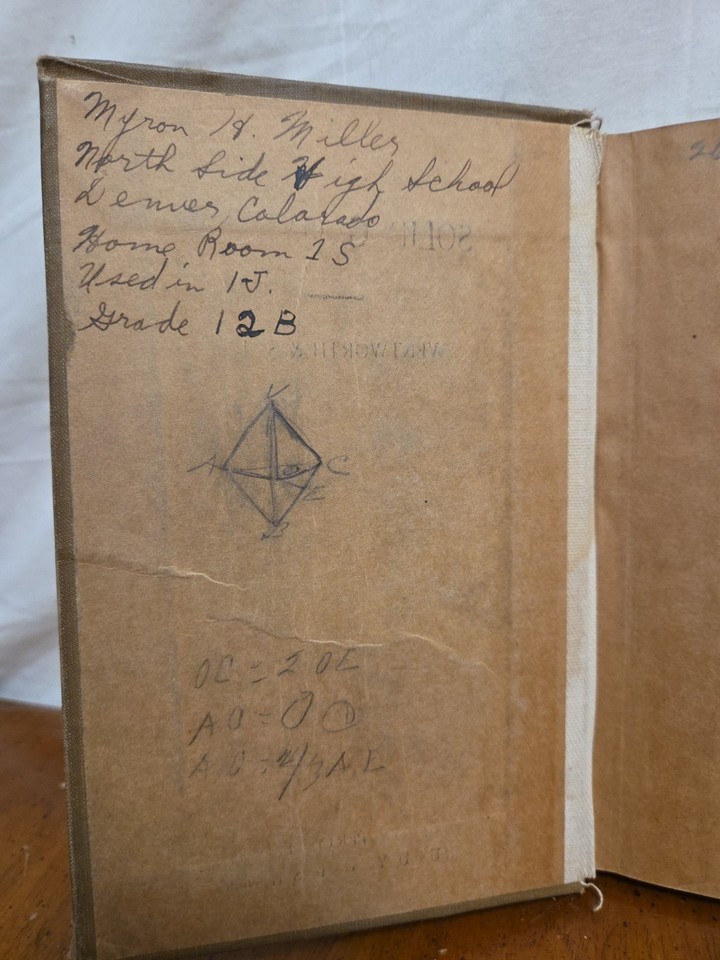 Myron H. Miller
North Side High School
Denver, Colorado
Home Room 1S
Used in 1J.
Grade 12B
SOLID G
WENTWORTH &
V
A O C
E
B
OC = 2 OE
AO = O
AO = 2/3 AE